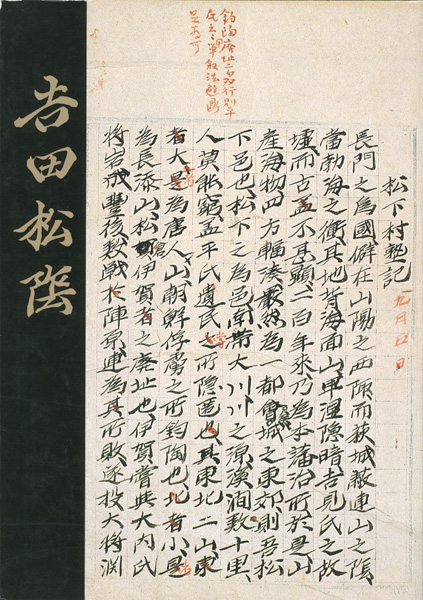 吉田松陰
松下村塾記
九月 日
長門之為國僻在山陽之西陬而萩城蔽連山之陰
當渤海之衝其地背海面山卑溼隐暗吉見氏之故
墟而古盖不甚顕二百年來乃為本藩治所於是山
產海物四方輻湊嚴然為一都會城之東郊則吾松
下邑也松下之為邑南帶大川川之源溪澗数十里
人莫能窮盖平氏遺民之所隐匿也其東北二山東
者大是為唐人山朝鮮俘虜之所鈞陶也北者小是
為長添山松倉伊賀者之廃址也伊賀嘗與大内氏
將岩成豊後数戰於陣原連為其所敗遂投大將渕